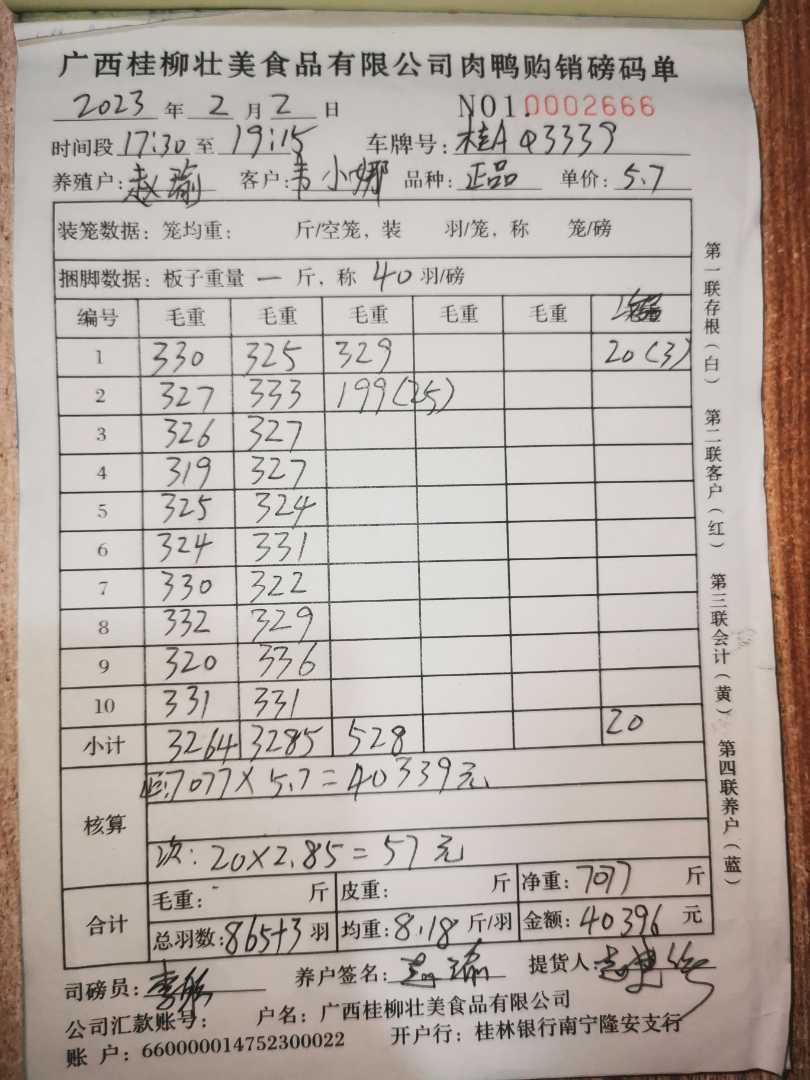 广西桂柳壮美食品有限公司肉鸭购销磅码单
2023 年 2 月 2 日 NO1.0002666
时间段 17:30 至 19:15 车牌号: 桂A Q3339
养殖户: 赵瑜 客户: 韦小娜 品种: 正品 单价: 5.7
装笼数据: 笼均重: 斤/空笼, 装 羽/笼, 称 笼/磅
捆脚数据: 板子重量 一 斤, 称 40 羽/磅
编号 毛重 毛重 毛重 毛重 毛重
1 330 325 329 20(3)
2 327 333 199(25)
3 326 327
4 319 327
5 325 324
6 324 331
7 330 322
8 332 329
9 320 336
10 331 331
小计 3264 3285 528 20
核算
正:7077×5.7=40339元
次:20×2.85=57元
合计
毛重: 斤 皮重: 斤 净重: 7077 斤
总羽数: 865+3 羽 均重: 8.18 斤/羽 金额: 40396 元
司磅员: 养户签名: 赵瑜 提货人:
公司汇款账号: 户名: 广西桂柳壮美食品有限公司
账 户: 660000014752300022 开户行: 桂林银行南宁隆安支行
第一联存根(白) 第二联客户(红) 第三联会计(黄) 第四联养户(蓝)